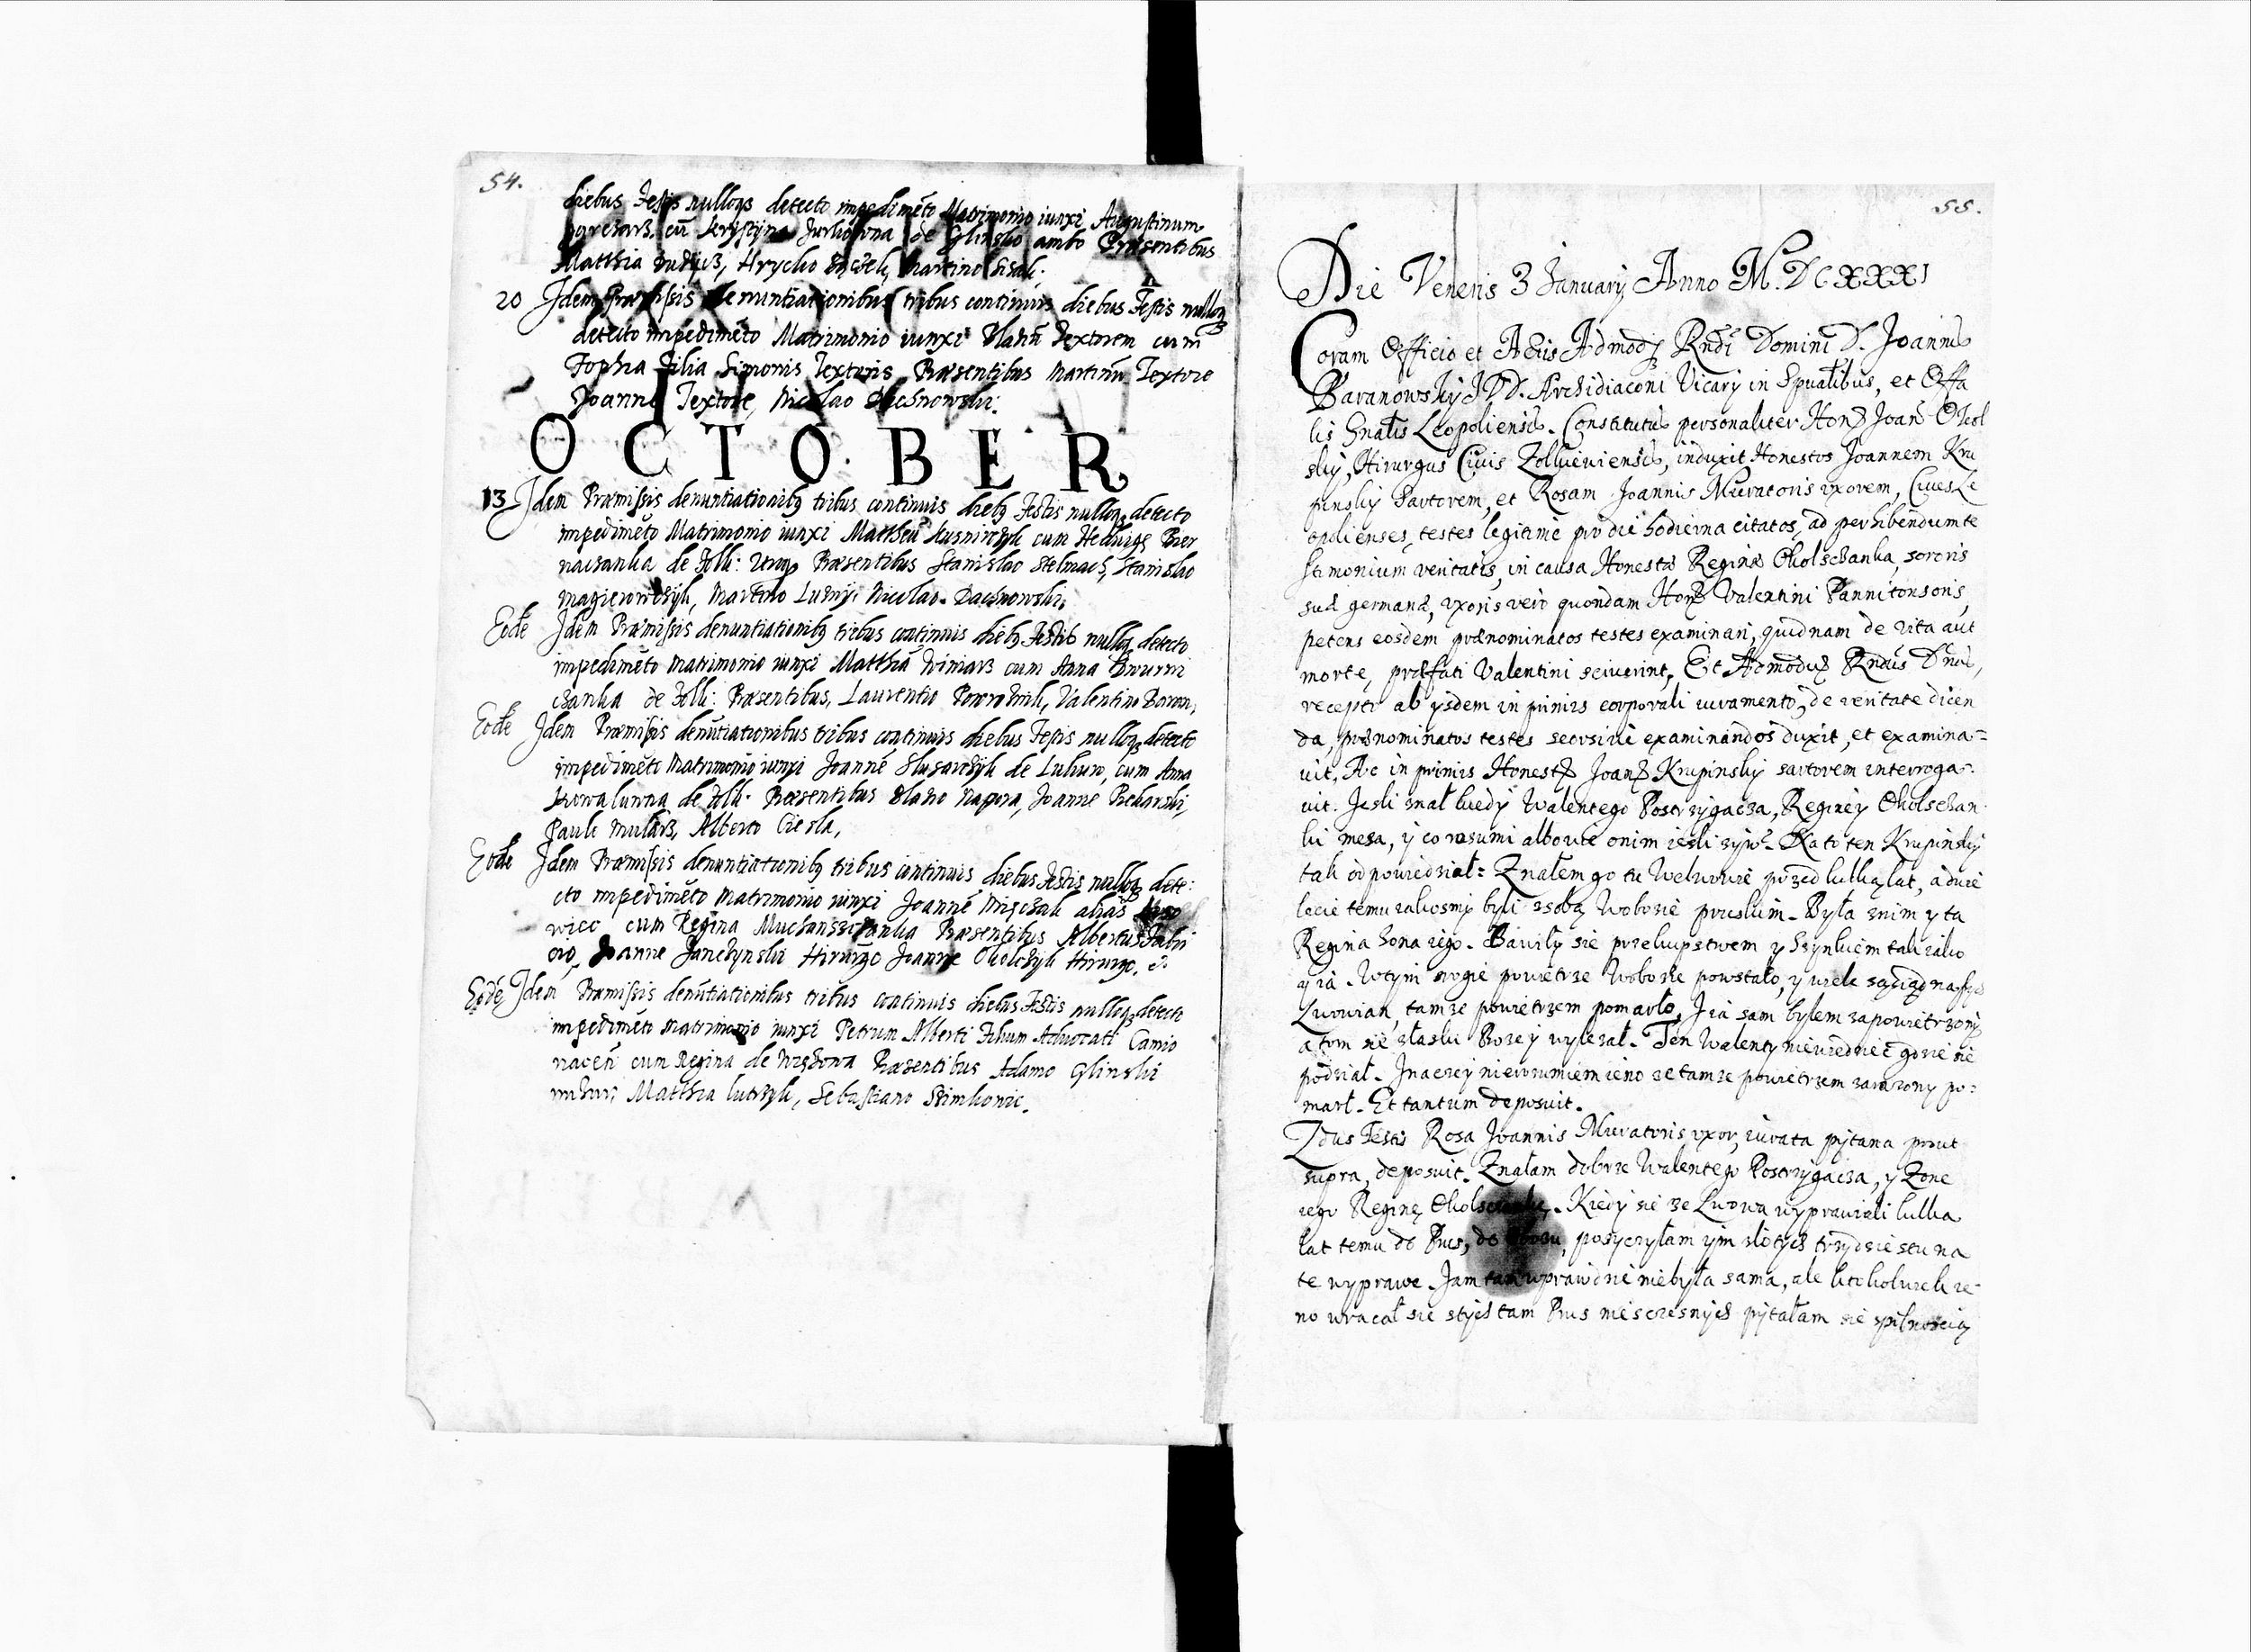 54.
diebus Festis nulloqs detecto impedimēto Matrimonio iunxi Augustinum
cū de Glinsko ambo Præsentibus
Matthia Hrycko Martino
20 Idem Præmissis denuntiationibus tribus continuis diebus Festis nulloq
detecto impedimēto Matrimonio iunxi Textorem cum
Zophia Filia Simonis Textoris Præsentibus Martino Textore
Joanne Textore, Nicolao Dachnowski.
OCTOBER
13 Idem Præmissis denuntiationibq tribus continuis diebq Festis nulloq detecto
impedimēto Matrimonio iunxi Mattheū Kusnirczyk cum Hedwige Bier
naczanka de Zolk: Præsentibus Stanislao Stelmach, Stanislao
Magierowczyk, Martino Nicolao Dachnowski.
Eodē Idem Præmissis denuntiationibq tribus continuis diebq Festis nulloq detecto
impedimēto Matrimonio iunxi Matthiā Winiarz cum Anna
czanka de Zolk: Præsentibus, Laurentio Valentino Baran,
Eodē Idem Præmissis denūtiationibus tribus continuis diebus Festis nulloq detecto
impedimēto Matrimonio iunxi Joannē Slusarczyk de cum Anna
Kowalowna de Zolk. Præsentibus Blasio Napora, Joanne Piekarski,
Paulo Mularz, Alberto Ciesla,
Eodē Idem Præmissis denuntiationibq tribus continuis diebus Festis nulloq dete:
cto impedimēto Matrimonio iunxi Joannē alias
cum Regina Præsentibus Albertus
Joanne Janczynski Hirurgo Joanne Okolczyk Hirurgo.
Eodē Idem Præmissis denūtiationibus tribus continuis diebus Festis nulloq detecto
impedimēto Matrimonio iunxi Petrum Alberti Filium Advocati Camio
nacen̄ cum Regina de Præsentibus Adamo Glinski
Matthia Sebastiano
55.
Die Veneris 3 January Anno M.DCXXXI
Coram Officio et Actis Admodꝫ Rndi Domini D. Joannis
Baranowskÿ JDD. Archidiaconi Vicary in Spūalibus, et Offa
lis Gnalis Leopoliensis. Constitutus personaliter Honꝫ Joan Okol
skÿ, Hirurgus Ciuis Zolkieuiensis, induxit Honestos Joannem Kru
pinskÿ Sartorem, et Rosam Joannis Muratoris vxorem, Ciues Le
opolienses, testes legitime pro die hodierna citatos, ad perhibendum te
stimonium veritatis, in causa Honestæ Reginæ Okolschanka, sororis
suæ germanæ, vxoris vero quondam Honꝫ Valentini Pannitonsoris,
petens eosdem prænominatos testes examinari, quidnam de vita aut
morte, præfati Valentini sciuerint. Et Admodꝫ Rndus Dnūs,
recepto ab ysdem in primis corporali iuramento, de veritate dicen
da, prænominatos testes seorsiue examinandos duxit, et examina=
uit. Ac in primis Honestꝫ Joanꝫ Krupinskÿ sartorem interroga=
uit. Jesli znał kiedy Walentego Postrzygacza, Reginey Okolschan
ki męża, y co rozumi albo wie onim iesli zyw? Na to ten Krupinskÿ
tak odpowiedział= Znałem go tu We Lwowie przed kilką lat, a dwie
lecie temu iakosmy byli zsobą Woboziè pruskim. Była znim y ta
Regina żona iego. Bawiły sie przekupstwem y szynkiem tak iako
y ia. Wtym srogie powietrze Woboziè powstało, y wiele
Lwowian, tamze powietrzem pomarło, J ia sam byłem zapowietrzony
a tom sie złaski Bożey wyleżał. Ten Walenty niewiedzieć gdzie sie
podział. Jnaczey nierozumiem ieno ze tamze powietrzem zarażony po=
marł. Et tantum deposuit.
2dus Testis Rosa Joannis Muratoris vxor, iurata pytana prout
supra, deposuit. Znałam dobrze Walentego Postrzygacza, y Zonę
iego Reginę Kiedy sie ze Lwowa wyprawiali kilka
lat temu do Prus, do obozu, pożyczyłam ÿm złotych trzydzieści na
te wyprawe. Jam tam wprawdzie niebyła sama, ale ktokolwiek ie=
no wracał sie stych tam Prus nieszczesnych pytałam sie spilnoscią